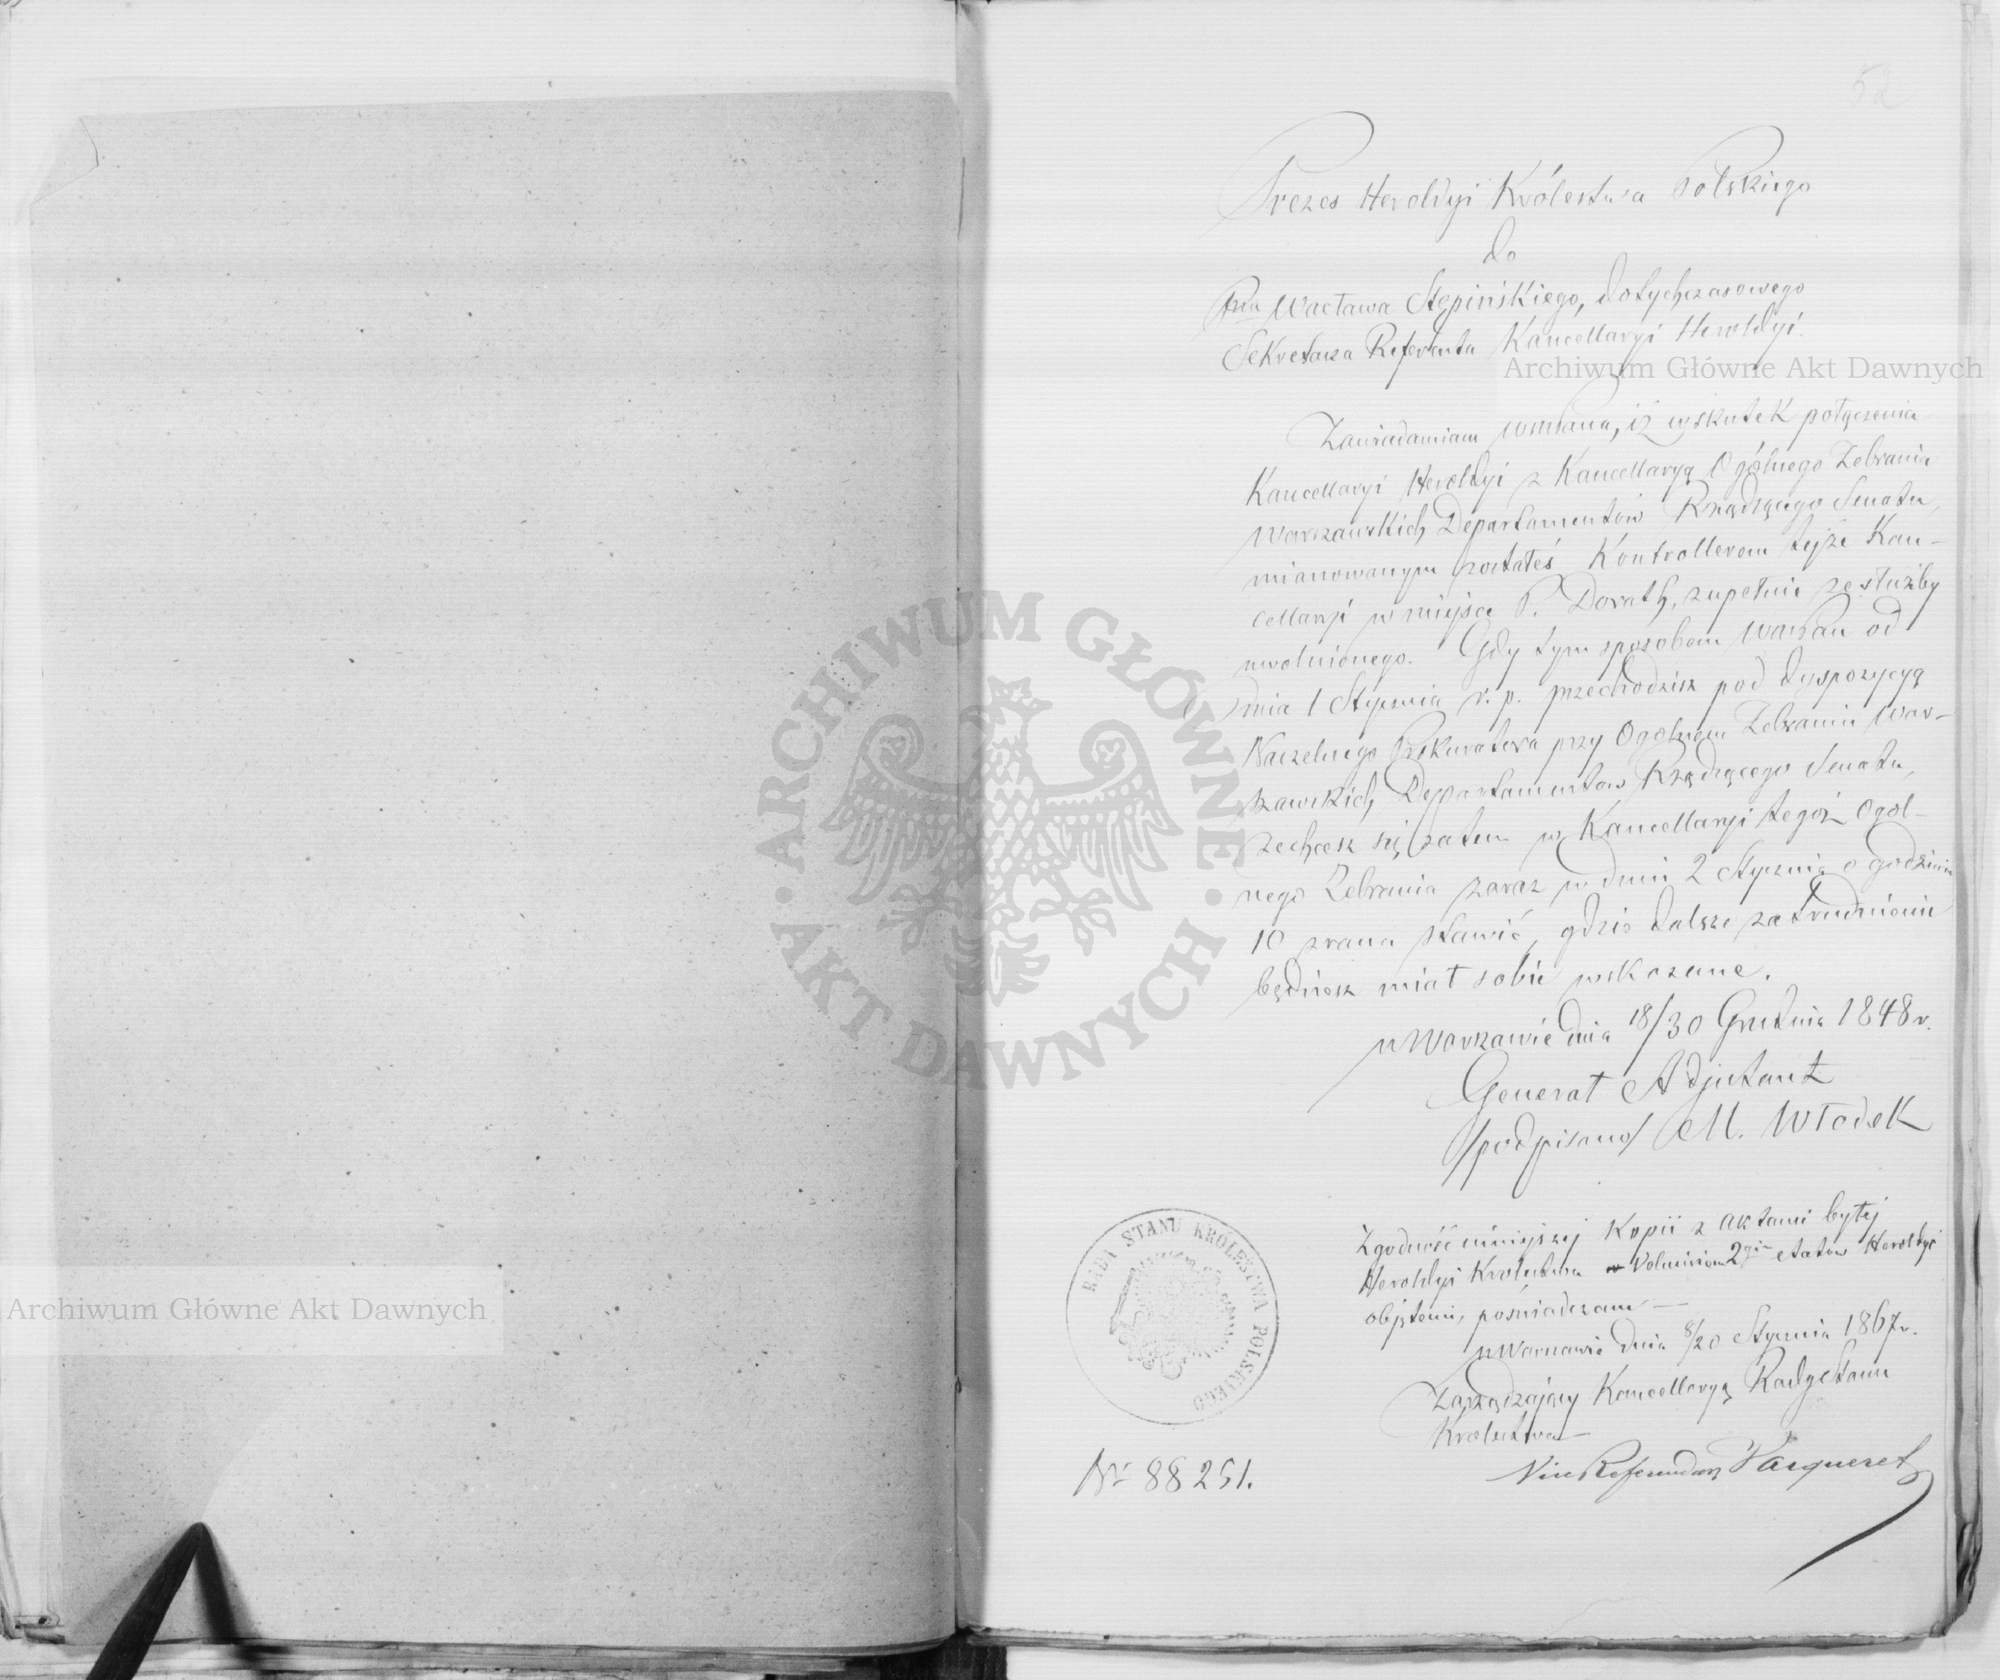 52
Prezes Heroldyi Królestwa Polskiego
do
Pna Wacława Stępińskiego, dotychczasowego
Sekretarza Referenta Kancellaryi Heroldyi.
Zawiadamiam WmPana, iż wskutek połączenia
Kancellaryi Heroldyi z Kancellaryą Ogólnego Zebrania
Warszawskich Departamentów Rządzącego Senatu,
mianowanym zostałeś Kontrollerem tejże Kan-
cellaryi w miejsce P. Dorath, zupełnie ze służby
uwolnionego. Gdy tym sposobem WmPan od
dnia 1 Stycznia r. p. przechodzisz pod dyspozycyą
Naczelnego Prokuratora przy Ogolnem Zebraniu War-
szawskich Departamentow Rządzącego Senatu,
zechcesz się zatem w Kancellaryi tegoż Ogól-
nego Zebrania zaraz w dniu 2 Stycznia o godzinie
10 zrana stawić, gdzie dalsze zatrudnienie
będziesz miał sobie wskazane.
w Warszawie dnia 18/30 Grudnia 1848 r.
Generał Adjutant
/podpisano/ M. Włodek
Zgodność niniejszej Kopii z aktami byłej
Heroldyi Królestwa w Voluminem 2gim etatów Heroldyi
objętemi, poświadczam —
w Warszawie dnia 8/20 Stycznia 1867 r.
Zarządzający Kancellaryą Rady Stanu
Królestwa —
Vice Referendarz
RADA STANU KRÓLESTWA POLSKIEGO
Nr 88251.
Archiwum Główne Akt Dawnych
Archiwum Główne Akt Dawnych
ARCHIWUM GŁÓWNE · AKT DAWNYCH ·